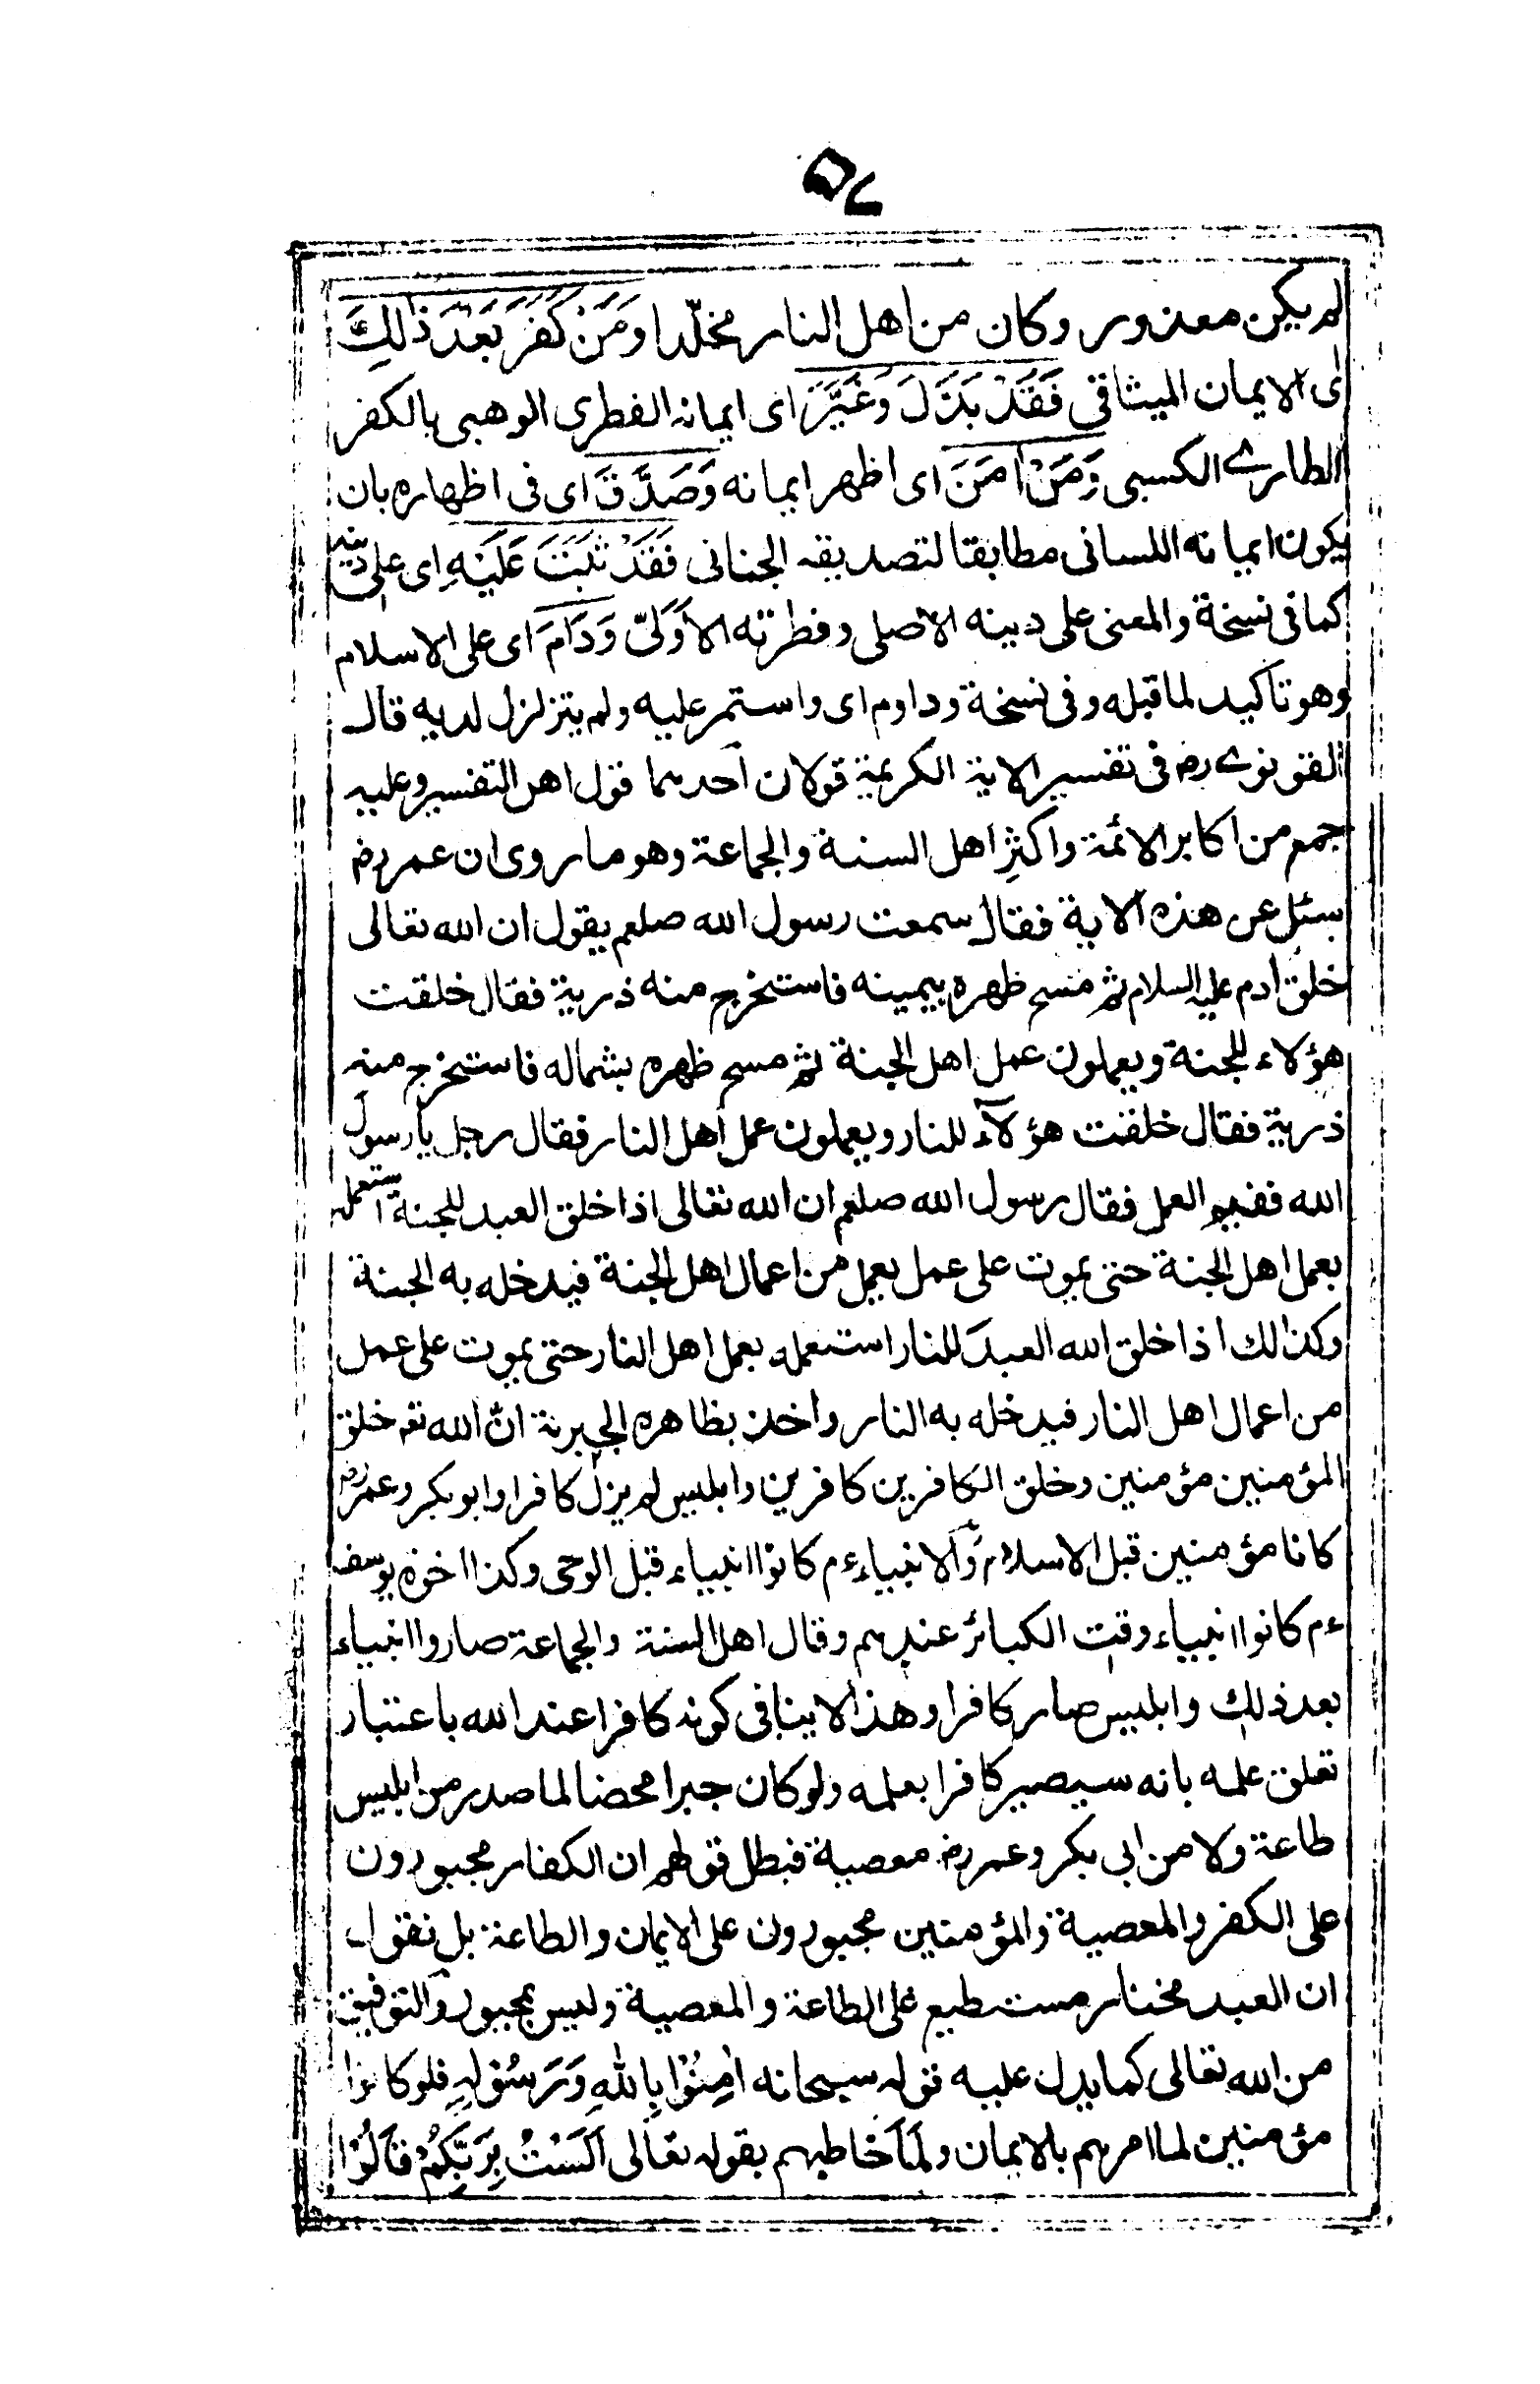 ٥٧
لم يكن معذور وكان من اهل النار مخلّدا وَمَنْ كَفَرَ بَعْدَ ذٰلِكَ
اى الايمان الميثاقى فَقَدْ بَدَّلَ وَغَيَّرَ اى ايمانه الفطرى الوهبى بالكفر
الطارے الكسبى وَمَنْ اٰمَنَ اى اظهر ايمانه وَصَدَّقَ اى فى اظهاره بان
يكون ايمانه اللسانى مطابقا لتصديقه الجنانى فَقَدْ ثَبَتَ عَلَيْهِ اى على دينه
كما فى نسخة والمعنى على دينه الاصلى وفطرته الاَوّلىّ وَدَامَ اى على الاسلام
وهو تاكيد لما قبله وفى نسخة وداوم اى واستمر عليه ولم يتزلزل لديه قال
القونوے رض فى تفسير الاية الكريمة قولان احدهما قول اهل التفسير وعليه
جمع من اكابر الائمة واكثرِ اهل السنة والجماعة وهو ما روى ان عمر رض
سئل عن هذه الاية فقال سمعت رسول الله صلعم يقول ان الله تعالى
خلق ادم عليه السلام ثم مسح ظهره بيمينه فاستخرج منه ذرية فقال خلقت
هؤلاء للجنة وبعملون عمل اهل الجنة ثم مسح ظهره بشماله فاستخرج منه
ذرية فقال خلقت هؤلآء للنار وبعملون عمل اهل النار فقال رجل يا رسول
الله ففيم العمل فقال رسول الله صلعم ان الله تعالى اذا خلق العبد للجنة استعمله
بعمل اهل الجنة حتى يموت على عمل بعمل من اعمال اهل الجنة فيدخله به الجنة
وكذالك اذا خلق الله العبدَ للنار استعمله بعمل اهل النار حتى يموت على عمل
من اعمال اهل النار فيدخله به النار واخذ بظاهره الجبرية انّ الله تعم خلق
المؤمنين مؤمنين وخلق الكافرين كافرين وابليس لم يزل كافرا وابو بكر وعمر رض
كانا مؤمنين قبل الاسلام وَالانبياء ءم كانوا انبياء قبل الوحى وكذا اخوة يوسف
ءم كانوا انبياء وقت الكبائر عندهم وقال اهل السنة والجماعة صاروا انبياء
بعد ذلك وابليس صار كافرا وهذا لا ينافى كونه كافرا عند الله باعتبار
تعلق علمه بانه سيصير كافرا بعلمه ولو كان جبرا محضا لما صدر من ابليس
طاعة ولا من ابى بكر وعمر رض معصية فبطل قولهم ان الكفار مجبورون
على الكفر والمعصية والمؤمنين مجبورون على الايمان والطاعة بل نقول
ان العبد مختار مستطيع على الطاعة والمعصية وليس بمجبور والتوفيق
من الله تعالى كما يدل عليه قوله سبحانه اٰمِنُوْا بِاللهِ وَرَسُوْلِهٖ فلو كانوا
مؤمنين لما امرهم بالايمان ولَمَا خاطبهم بقوله تعالى اَلَسْتُ بِرَبِّكُمْ قَالُوْا